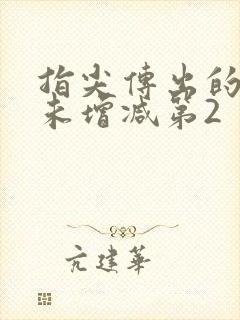 指尖傳出的
未增减第2
亢建華